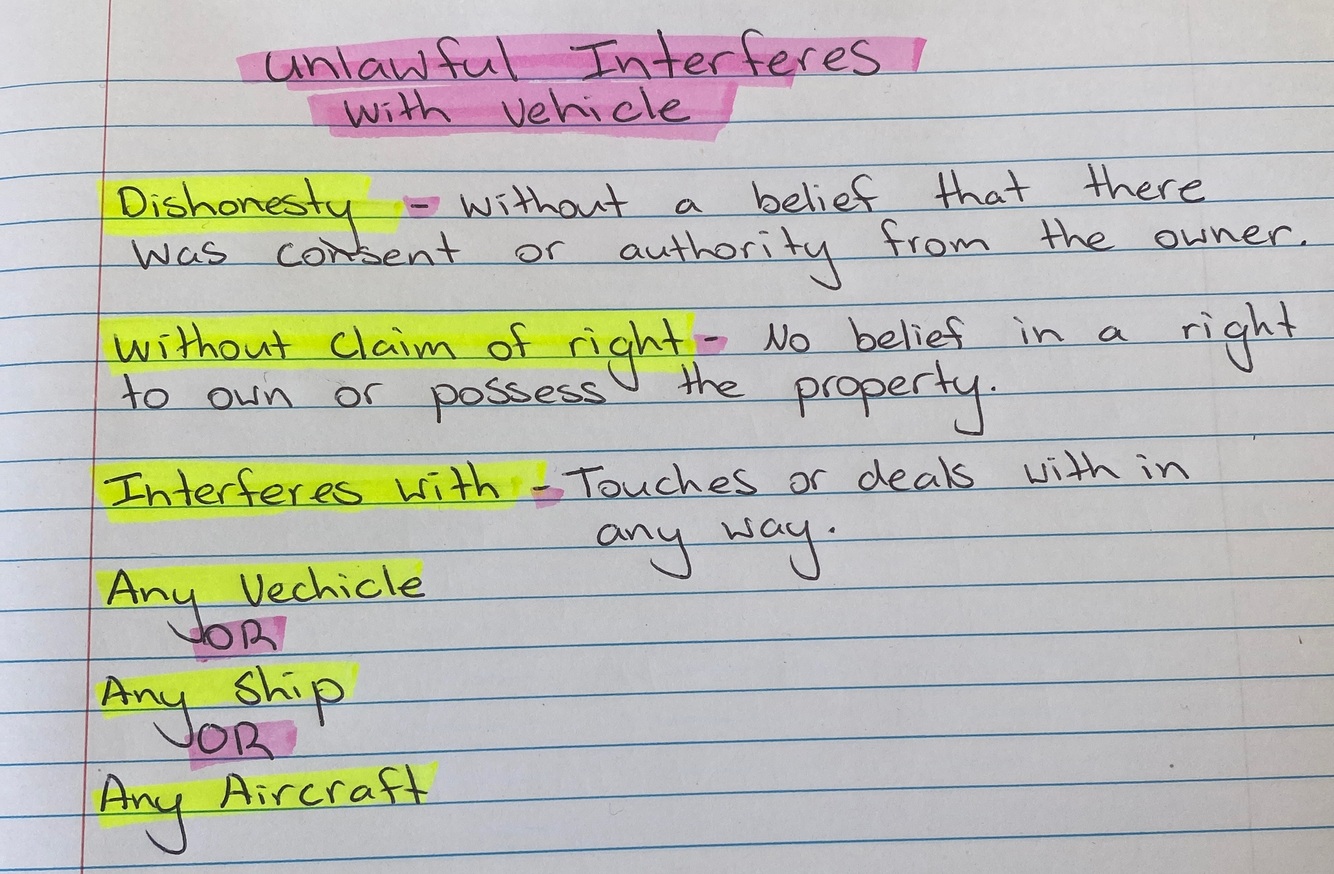 Unlawful Interferes
with vehicle
Dishonesty - without a belief that there
was consent or authority from the owner.
without claim of right - No belief in a right
to own or possess the property.
Interferes with - Touches or deals with in
any way.
Any Vechicle
OR
Any Ship
OR
Any Aircraft